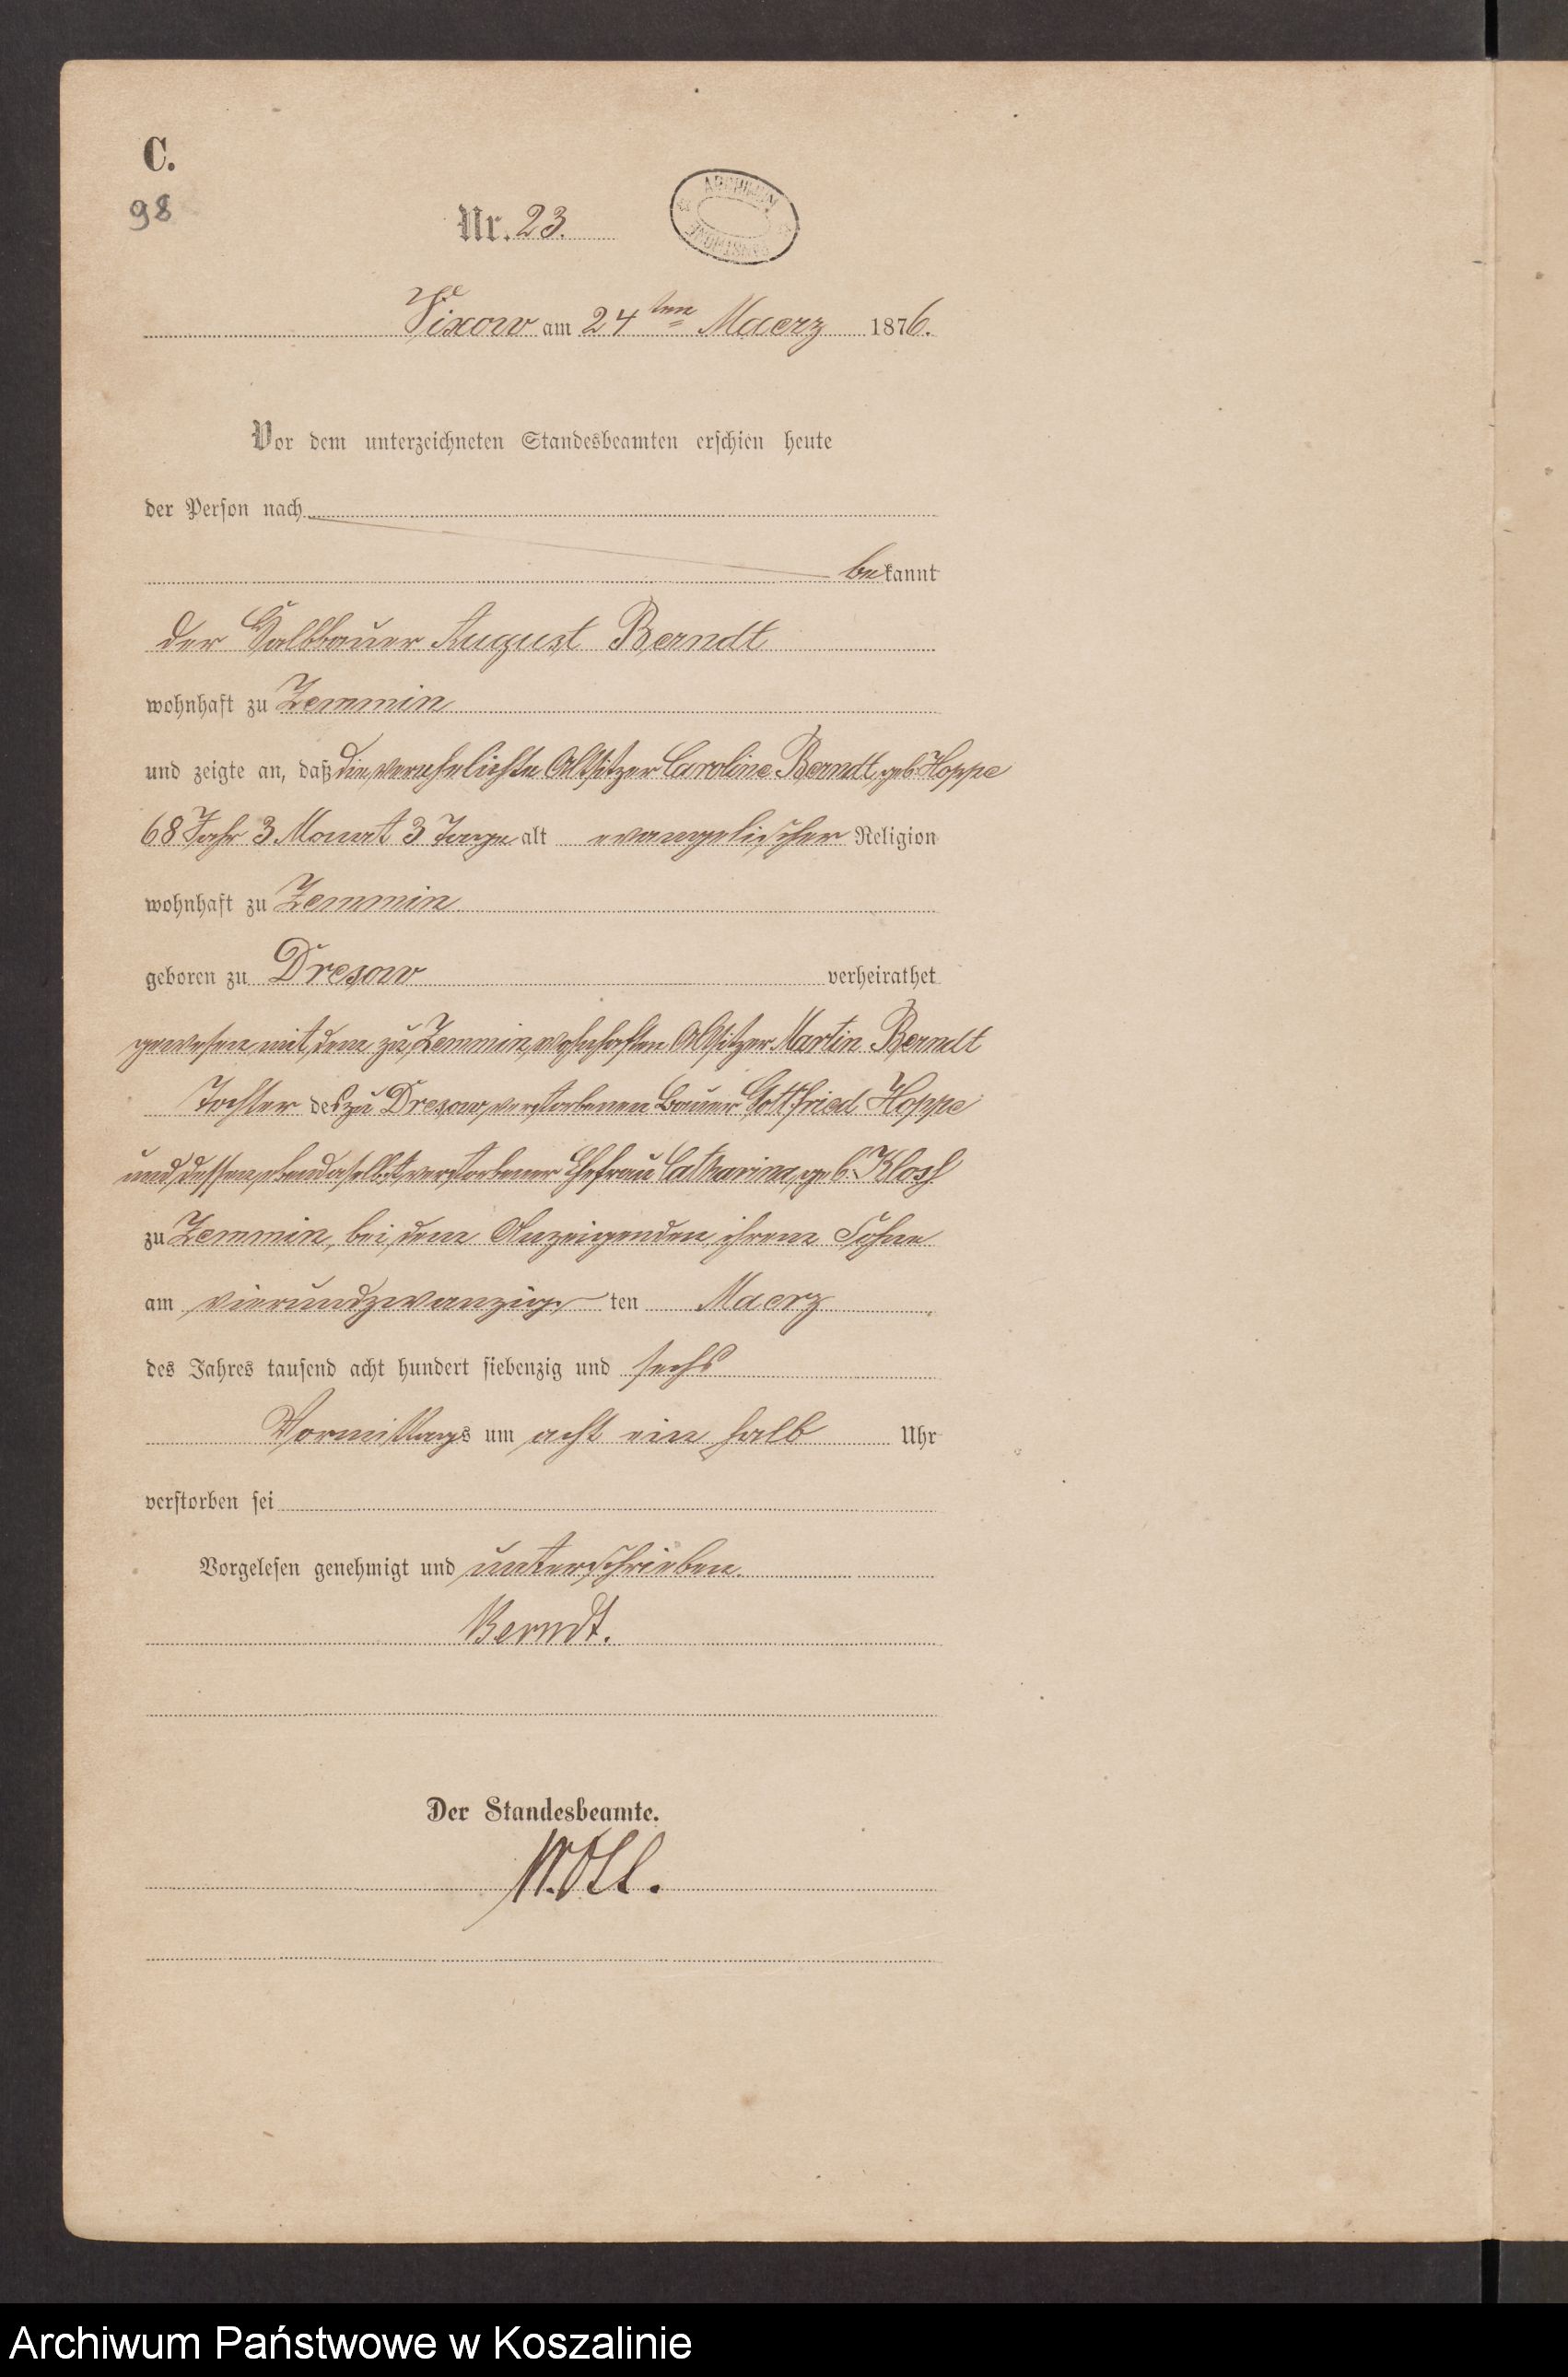 C.
98
Nr. 23.
ARCHIWUM
Vixow am 24ten Maerz 1876.
Vor dem unterzeichneten Standesbeamten erschien heute
der Person nach
bekannt
der Halbbauer August Berndt
wohnhaft zu Zemmin
und zeigte an, daß die verehelichte Altsitzer Caroline Berndt, geb. Hoppe
68 Jahr 3 Monat 3 Tage alt evangelischer Religion
wohnhaft zu Zemmin
geboren zu Dresow verheirathet
gewesen mit dem zu Zemmin wohnhaften Altsitzer Martin Berndt
Tochter des zu Dresow verstorbenen Bauer Gottfried Hoppe
und dessen ebendaselbst verstorbener Ehefrau Catharina, geb.
zu Zemmin, bei dem Anzeigenden, ihrem Sohne
am vierundzwanzig ten Maerz
des Jahres tausend acht hundert siebenzig und sechs
Vormittags um acht ein halb Uhr
verstorben sei
Vorgelesen genehmigt und unterschrieben.
Berndt.
Der Standesbeamte.
Archiwum Państwowe w Koszalinie